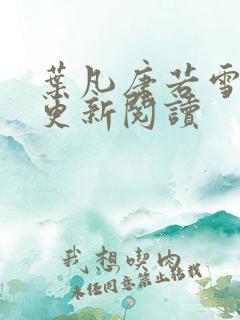 葉凡唐若雪
更新閱讀
我想喫肉
未经同意禁止转载